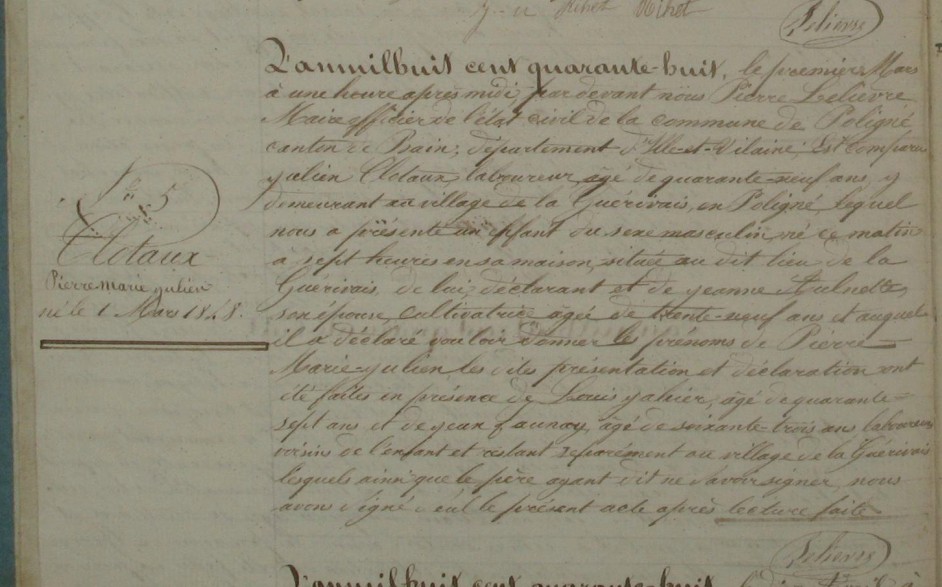 Lelievre
L'an mil huit cent quarante-huit, le premier Mars
à une heure après midi, par devant nous Pierre Lelievre
Maire officier de l'état civil de la commune de Poligné,
canton de Bain, département d'Ille-et-Vilaine, Est comparu
julien Clotaux, laboureur, agé de quarante-neuf ans, y
demeurant au village de la Guérivais, en Poligné, lequel
nous a présenté un enfant du sexe masculin, né ce matin
à sept heures en sa maison, située au dit lieu de la
Guérivais, de lui, déclarant et de jeanne Aulnette,
son épouse, cultivatrice, agée de trente-neuf ans et auquel
il a déclaré vouloir donner les prénoms de Pierre-
Marie-julien, les dites présentation et déclaration ont
été faites en présence de Louis jahier, agé de quarante-
sept ans et de jean faunay, agé de soixante-trois ans laboureurs
voisins de l'enfant et restant séparément au village de la Guérivais
lesquels ainsi que le père ayant dit ne savoir signer nous
avons signé seul le présent acte après lecture faite
Lelievre
L'an mil huit cent quarante-huit,
N° 5
Clotaux
Pierre marie julien
né le 1 Mars 1848.